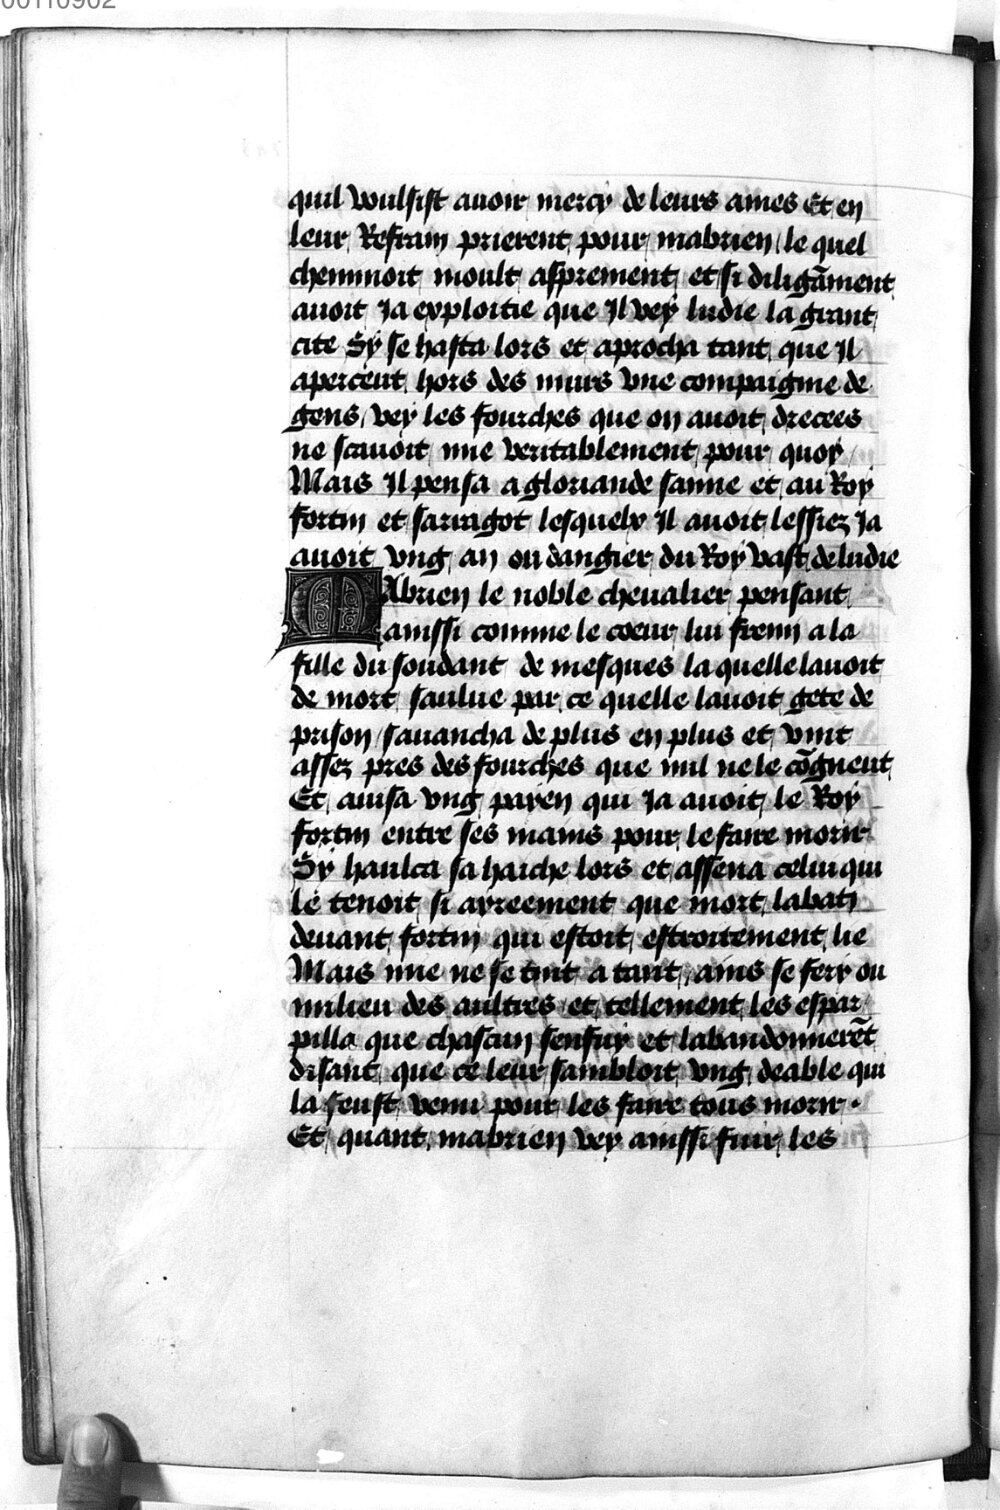 00110902
quil voulsist auoir mercy de leurs ames Et en
leur Refrain prierent pour mabrien le quel
cheminoit moult asprement et si diligāment
auoit Ja exploitie que Jl vey ludie la grant
cite Sy se hasta lors et aprocha tant que Jl
aperceut hors des murs vne compaignie de
gens vey les fourches que on auoit drecees
ne scauoit mie veritablement pour quoy
Mais Jl pensa a gloriande sanne et au Roy
fortin et sarragot lesquelx Jl auoit lessiez Ja
auoit vng an ou dangier du Roy vast de ludie
MAbrien le noble cheualier pensant
ainssi comme le coeur lui fremi a la
fille du soudant de mesques la quelle lauoit
de mort saulue par ce quelle lauoit gete de
prison sauancha de plus en plus et vint
assez pres des fourches que nul ne le cōgneut
Et auisa vng payen qui Ja auoit le Roy
fortin entre ses mains pour le faire morir
Sy haulca sa haiche lors et assena celui qui
le tenoit si ayreement que mort labati
deuant fortin qui estoit estroitement lie
Mais mie ne se tint a tant ains se fery ou
milieu des aultres et tellement les espar
pilla que chascun senfuy et labandonnerēt
disant que ce leur sambloit vng deable qui
la feust venu pour les faire tous morir.
Et quant mabrien vey ainssi fuir les